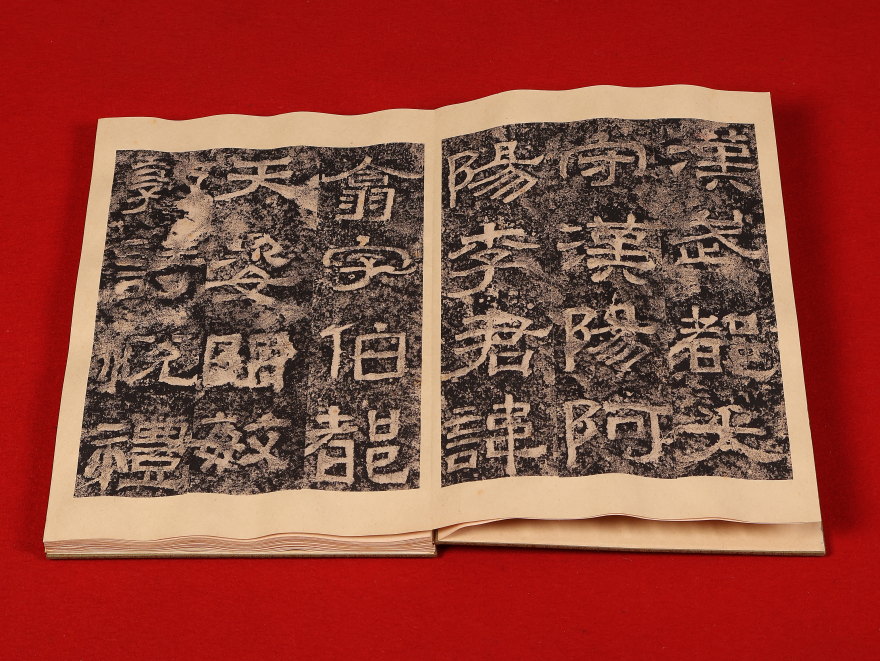 漢武都太
守漢陽阿
陽李君諱
翕字伯都
天姿明敏
敦詩悅禮